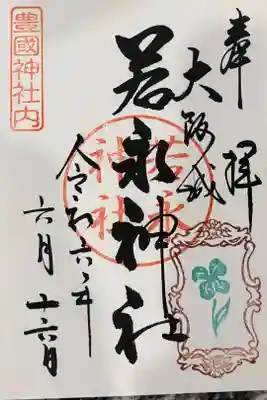 奉拝
大阪城
若永神社
令和六年
六月十六日
豊國神社内
若永神社